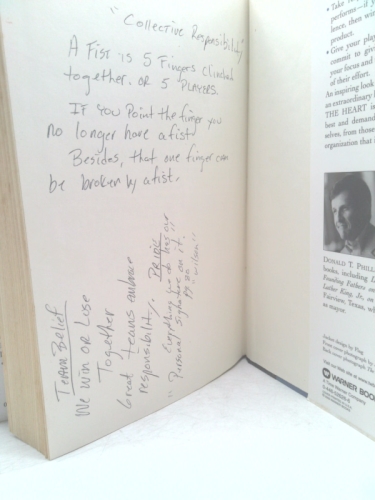 "Collective Responsibility"
A Fist is 5 Fingers Clinched
together. or 5 PLAYERS.
IF you Point the finger you
no longer have a fist
Besides, that one finger can
be broken by a fist.
Team Belief
We win or Lose
Together
Great teams embrace
responsibility.
PRIDE
"Everything you do has your
Personal signature on it.
"wilson"
• Take
performs—if y
lence, then win
product.
• Give your play
commit to givi
your focus and
of their effort.
An inspiring look
an extraordinary l
THE HEART is
best and demand
selves, from those
organization that i
DONALD T. PHILL
books, including
Founding Fathers on
Luther King, Jr., on
Fairview, Texas, wh
as mayor.
Jacket design by
WARNER BOO